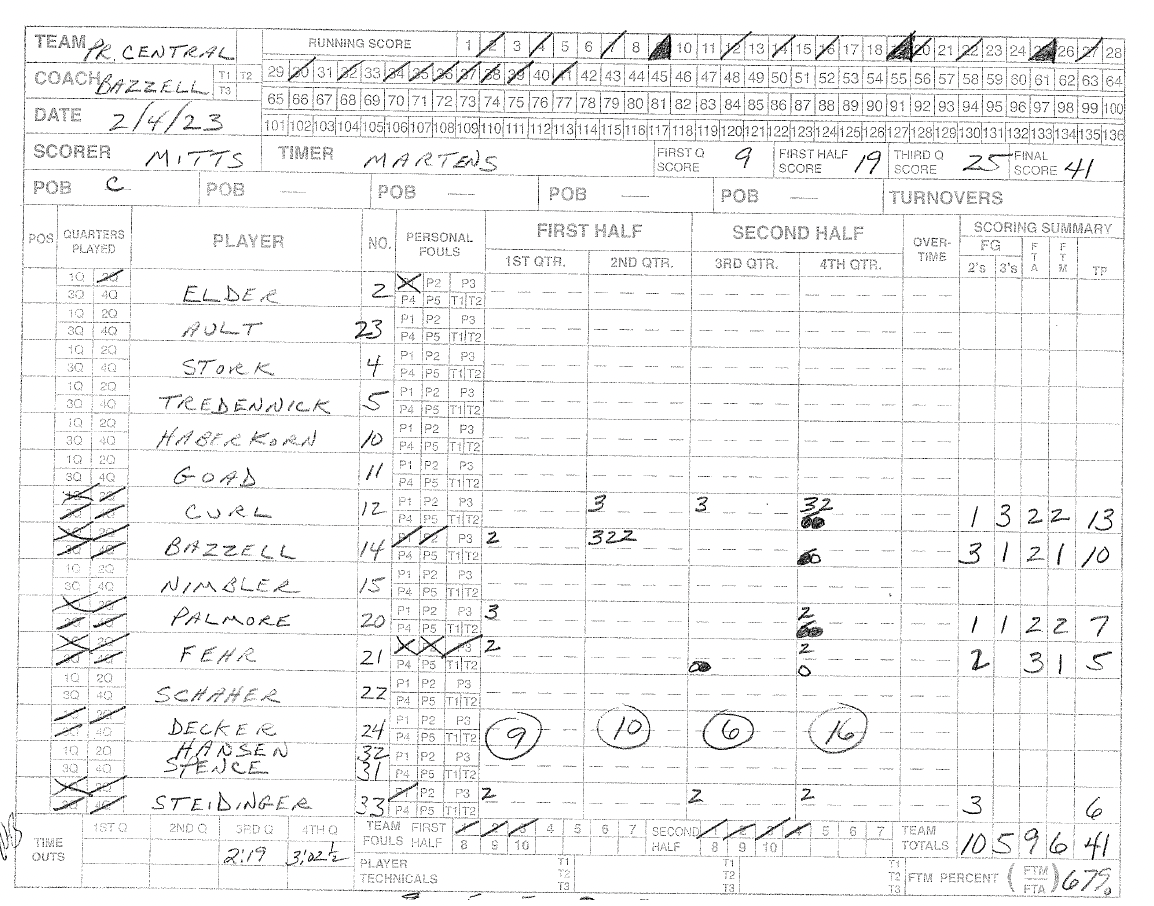 TEAM PR. CENTRAL RUNNING SCORE 1 2 3 4 5 6 7 8 9 10 11 12 13 14 15 16 17 18 19 20 21 22 23 24 25 26 27 28
COACH BAZZELL T1 T2 T3 29 30 31 32 33 34 35 36 37 38 39 40 41 42 43 44 45 46 47 48 49 50 51 52 53 54 55 56 57 58 59 60 61 62 63 64
65 66 67 68 69 70 71 72 73 74 75 76 77 78 79 80 81 82 83 84 85 86 87 88 89 90 91 92 93 94 95 96 97 98 99 100
DATE 2/4/23 101 102 103 104 105 106 107 108 109 110 111 112 113 114 115 116 117 118 119 120 121 122 123 124 125 126 127 128 129 130 131 132 133 134 135 136
SCORER MITTS TIMER MARTENS FIRST Q SCORE 9 FIRST HALF SCORE 19 THIRD Q SCORE 25 FINAL SCORE 41
POB C POB — POB — POB — POB — TURNOVERS
POS QUARTERS PLAYED PLAYER NO. PERSONAL FOULS FIRST HALF SECOND HALF OVER-TIME SCORING SUMMARY
1ST QTR. 2ND QTR. 3RD QTR. 4TH QTR. FG 2's 3's FTA FTM TP
1Q 3Q 4Q ELDER 2 P2 P3 P4 P5 T1 T2
1Q 2Q 3Q 4Q AULT 23 P1 P2 P3 P4 P5 T1 T2
1Q 2Q 3Q 4Q STORK 4 P1 P2 P3 P4 P5 T1 T2
1Q 2Q 3Q 4Q TREDENNICK 5 P1 P2 P3 P4 P5 T1 T2
1Q 2Q 3Q 4Q HABERKORN 10 P1 P2 P3 P4 P5 T1 T2
1Q 2Q 3Q 4Q GOAD 11 P1 P2 P3 P4 P5 T1 T2
CURL 12 P1 P2 P3 P4 P5 T1 T2 3 3 32 1 3 2 2 13
BAZZELL 14 P3 P4 P5 T1 T2 2 322 3 1 2 1 10
1Q 2Q 3Q 4Q NIMBLER 15 P1 P2 P3 P4 P5 T1 T2
PALMORE 20 P1 P2 P3 P4 P5 T1 T2 3 2 1 1 2 2 7
FEHR 21 P4 P5 T1 T2 2 2 0 2 3 1 5
1Q 2Q 3Q 4Q SCHAHER 22 P1 P2 P3 P4 P5 T1 T2
DECKER 24 P1 P2 P3 P4 P5 T1 T2 9 10 6 16
1Q 2Q HANSEN 32 P1 P2 P3
3Q 4Q SPENCE 31 P4 P5 T1 T2
STEIDINGER 33 P2 P3 P4 P5 T1 T2 2 2 2 3 6
TIME OUTS 1ST Q 2ND Q 3RD Q 4TH Q TEAM FOULS FIRST HALF 1 2 3 4 5 6 7 8 9 10 SECOND HALF 1 2 3 4 5 6 7 8 9 10 TEAM TOTALS 10 5 9 6 41
2:19 3:02½ PLAYER TECHNICALS T1 T2 T3 T1 T2 T3 T1 T2 T3 FTM PERCENT (FTM/FTA) 67%